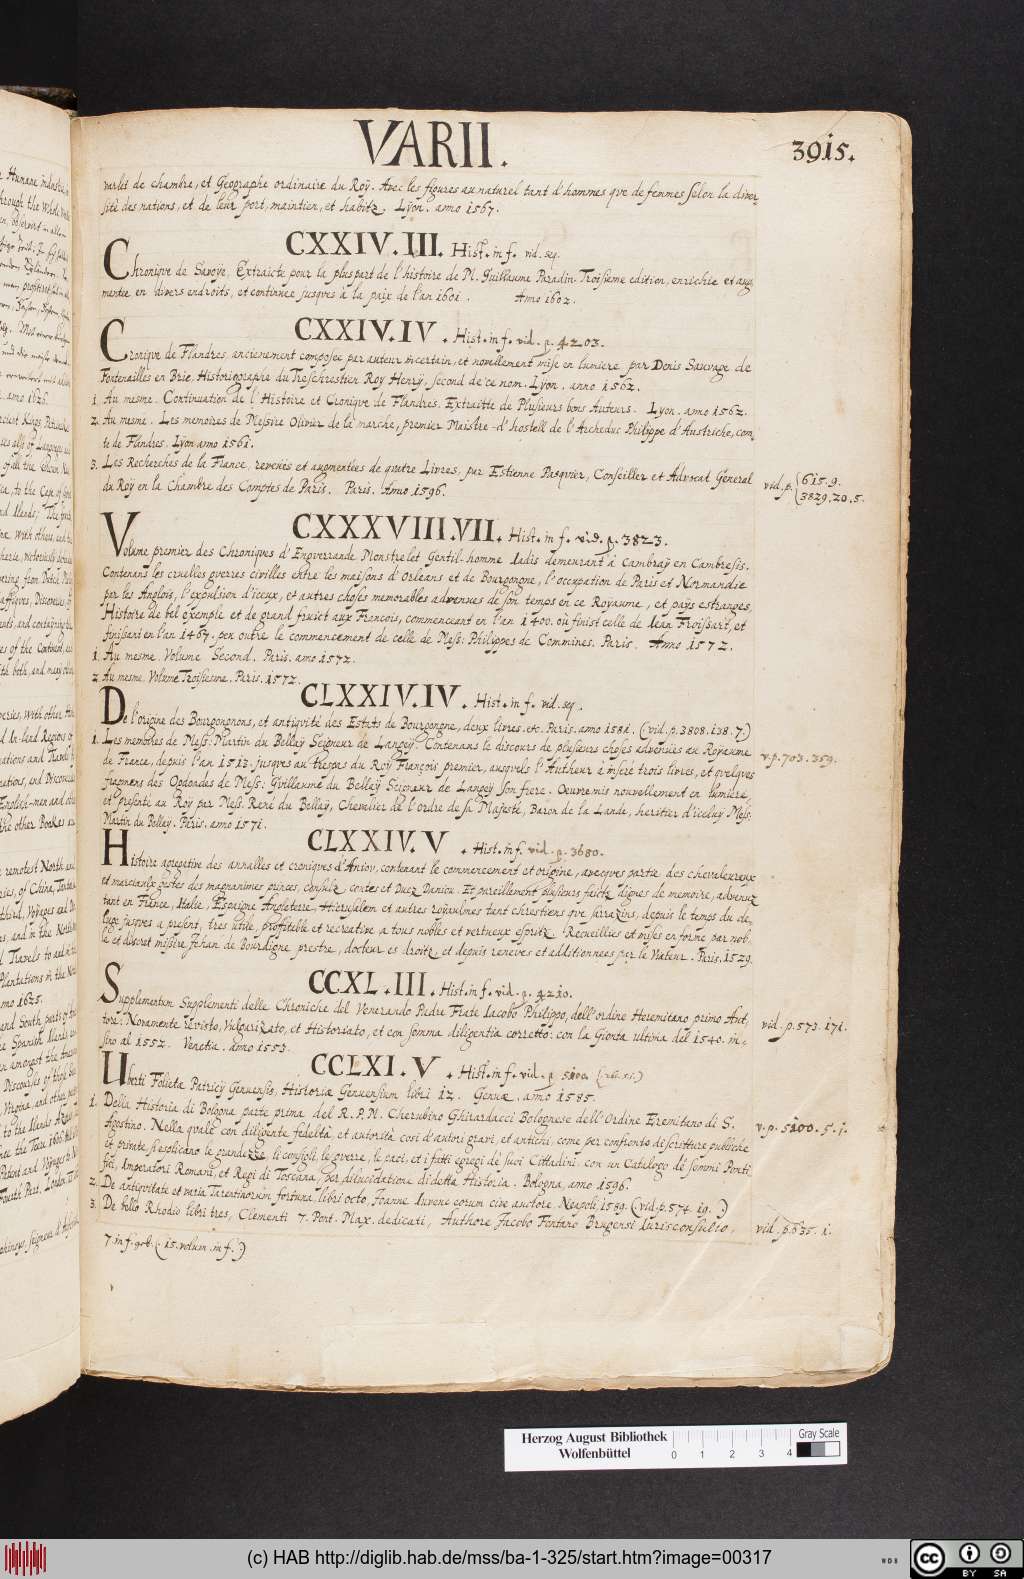 VARII.
3915.
varlet de chambre, et Geographe ordinaire du Roÿ. Avec les figures au naturel tant d'hommes que de femmes selon la diver,
sité des nations, et de leur port, maintien, et habitz. Lÿon. anno 1567.
CXXIV.III. Hist. in f. vid. seq.
Chronique de Savoÿe, Extraicte pour la pluspart de l'histoire de M. Guillaume Paradin. Troisieme edition, enrichie et aug,
mentee en divers endroits, et continuee jusques à la paix de l'an 1601. Anno 1602.
CXXIV.IV. Hist. in f. vid. p. 4203.
Cronique de Flandres, anciennement composée par auteur incertain, et nouvellement mise en lumiere par Denis Sauvage de
Fontenailles en Brie, Historiographe du Treschrestien Roy Henrÿ, second de ce nom. Lÿon. anno 1562.
1. Au mesme. Continuation de l'Histoire et Cronique de Flandres. Extraitte de Plusieurs bons Auteurs. Lyon. anno 1562.
2. Au mesme. Les memoires de Messire Olivier de la marche, premier Maistre-d'hostell de l'Archeduc Philippe d'Austriche, com,
te de Flandres. Lÿon anno 1561.
3. Les Recherches de la France, reveuës et augmentées de quatre Livres, par Estienne Pasquier, Conseiller et Advocat General
du Roÿ en la Chambre des Comptes de Paris. Paris. Anno 1596.
vid. p. 615. 9.
3829. 20. 5.
CXXXVIII.VII. Hist. in f. vid. p. 3823.
Volume premier des Chroniques d'Enguerrande Monstrelet Gentil-homme Iadis demeurant à Cambraÿ en Cambresis.
Contenans les cruelles guerres civilles entre les maisons d'Orleans et de Bourgongne, l'occupation de Paris et Normandie
par les Anglois, l'expulsion d'iceux, et autres choses memorables advenues de son temps en ce Royaume, et paÿs estranges,
Histoire de bel exemple et de grand fruict aux Francois, commencant en l'an 1400. où finist celle de Iean Froissart, et
finissant en l'an 1467. peu outre le commencement de celle de Mess: Philippes de Commines. Paris. Anno 1572.
1. Au mesme Volume Second. Paris. anno 1572.
2. Au mesme. Volume Troisiesme. Paris. 1572.
CLXXIV.IV. Hist. in f. vid. seq.
De l'origine des Bourgongnons, et antiquité des Estats de Bourgongne, deux livres. etc. Paris. anno 1581. (vid. p. 3808. 138. 7.)
1. Les memoires de Mess. Martin du Bellaÿ Seigneur de Langeÿ. Contenans le discours de plusieurs choses advenües au Royaume
de France, depuis l'an 1513. jusques au trespas du Roÿ François premier, ausquels l'Autheur à inseré trois livres, et quelques
fragmens des Ogdoades de Mess: Guillaume du Bellaÿ Seigneur de Langeÿ son frere. Oeuvre mis nouvellement en lumiere,
et presenté au Roÿ par Mess. René du Bellaÿ, Chevalier de l'ordre de sa Majesté, Baron de la Lande, heritier d'iceluÿ Mess.
Martin du Bellay. Paris. anno 1571.
v. p. 703. 359.
CLXXIV.V. Hist. in f. vid. p. 3680.
Histoire agregative des annalles et croniques d'Aniou, contenant le commencement et origine, avecques partie des chevaleureux
et marciaulx gestes des magnanimes princes, consulz contes et Ducz Daniou. Et pareillement plusieurs faictz dignes de memoire, advenuz
tant en France, Italie, Espaigne Angleterre, Hierusalem et autres roÿaulmes tant chrestiens que sarrazins, depuis le temps du de,
luge jusques a present, tres utile, profitable et recreative a tous nobles et vertueux esperitz. Recueillies et mises en forme par nob.
le et discret missire Jehan de Bourdigne prestre, docteur es droitz et depuis reneves et additionnees par le Viateur. Paris. 1529.
CCXL.III. Hist. in f. vid. p. 4210.
Supplementum Supplementi delle Chroniche del Venerando Padre Frate Iacobo Philippo, dell'ordine Heremitano primo Aut,
tore: Novamente revisto, Vulgarizato, et Historiato, et con somma diligentia corretto: con la Gionta ultima del 1540. in,
sino al 1552. Venetia. anno 1553.
vid. p. 573. 171.
CCLXI.V. Hist. in f. vid. p. 5100.
Uberti Folietæ Patricÿ Genuensis, Historiæ Genuensium libri 12. Genuæ. anno 1585.
1. Della Historia di Bologna parte prima del R.P.M. Cherubino Ghirardacci Bolognese dell'Ordine Eremitano di S.
Agostino. Nella quale con diligente fedeltà, et autorità cosi d'autori gravi, et antichi, come per confronto di scritture publiche
et private, si esplicano le grandezze, li consigli, le guerre, le paci, et i fatti egregi de suoi Cittadini. con un Catalogo de sommi Ponti
fici, Imperatori Romani, et Regi di Toscana, per dilucidatione di detta Historia. Bologna, anno 1596.
v. p. 5100. 5. 1.
2. De antiquitate et varia Tarentinorum fortuna, libri octo, Joanne Iuvene eorum cive auctore. Neapoli. 1589. (vid. p. 574. 19.)
3. De bello Rhodio libri tres, Clementi 7. Pont. Max. dedicati, Authore Jacobo Fontano Brugensi Iurisconsulto.
vid. p. 635. 1.
7. in f. geb. (15. volum. in f.)
Herzog August Bibliothek
Wolfenbüttel
0 1 2 3 4
Gray Scale
(c) HAB http://diglib.hab.de/mss/ba-1-325/start.htm?image=00317
WDB
cc BY SA